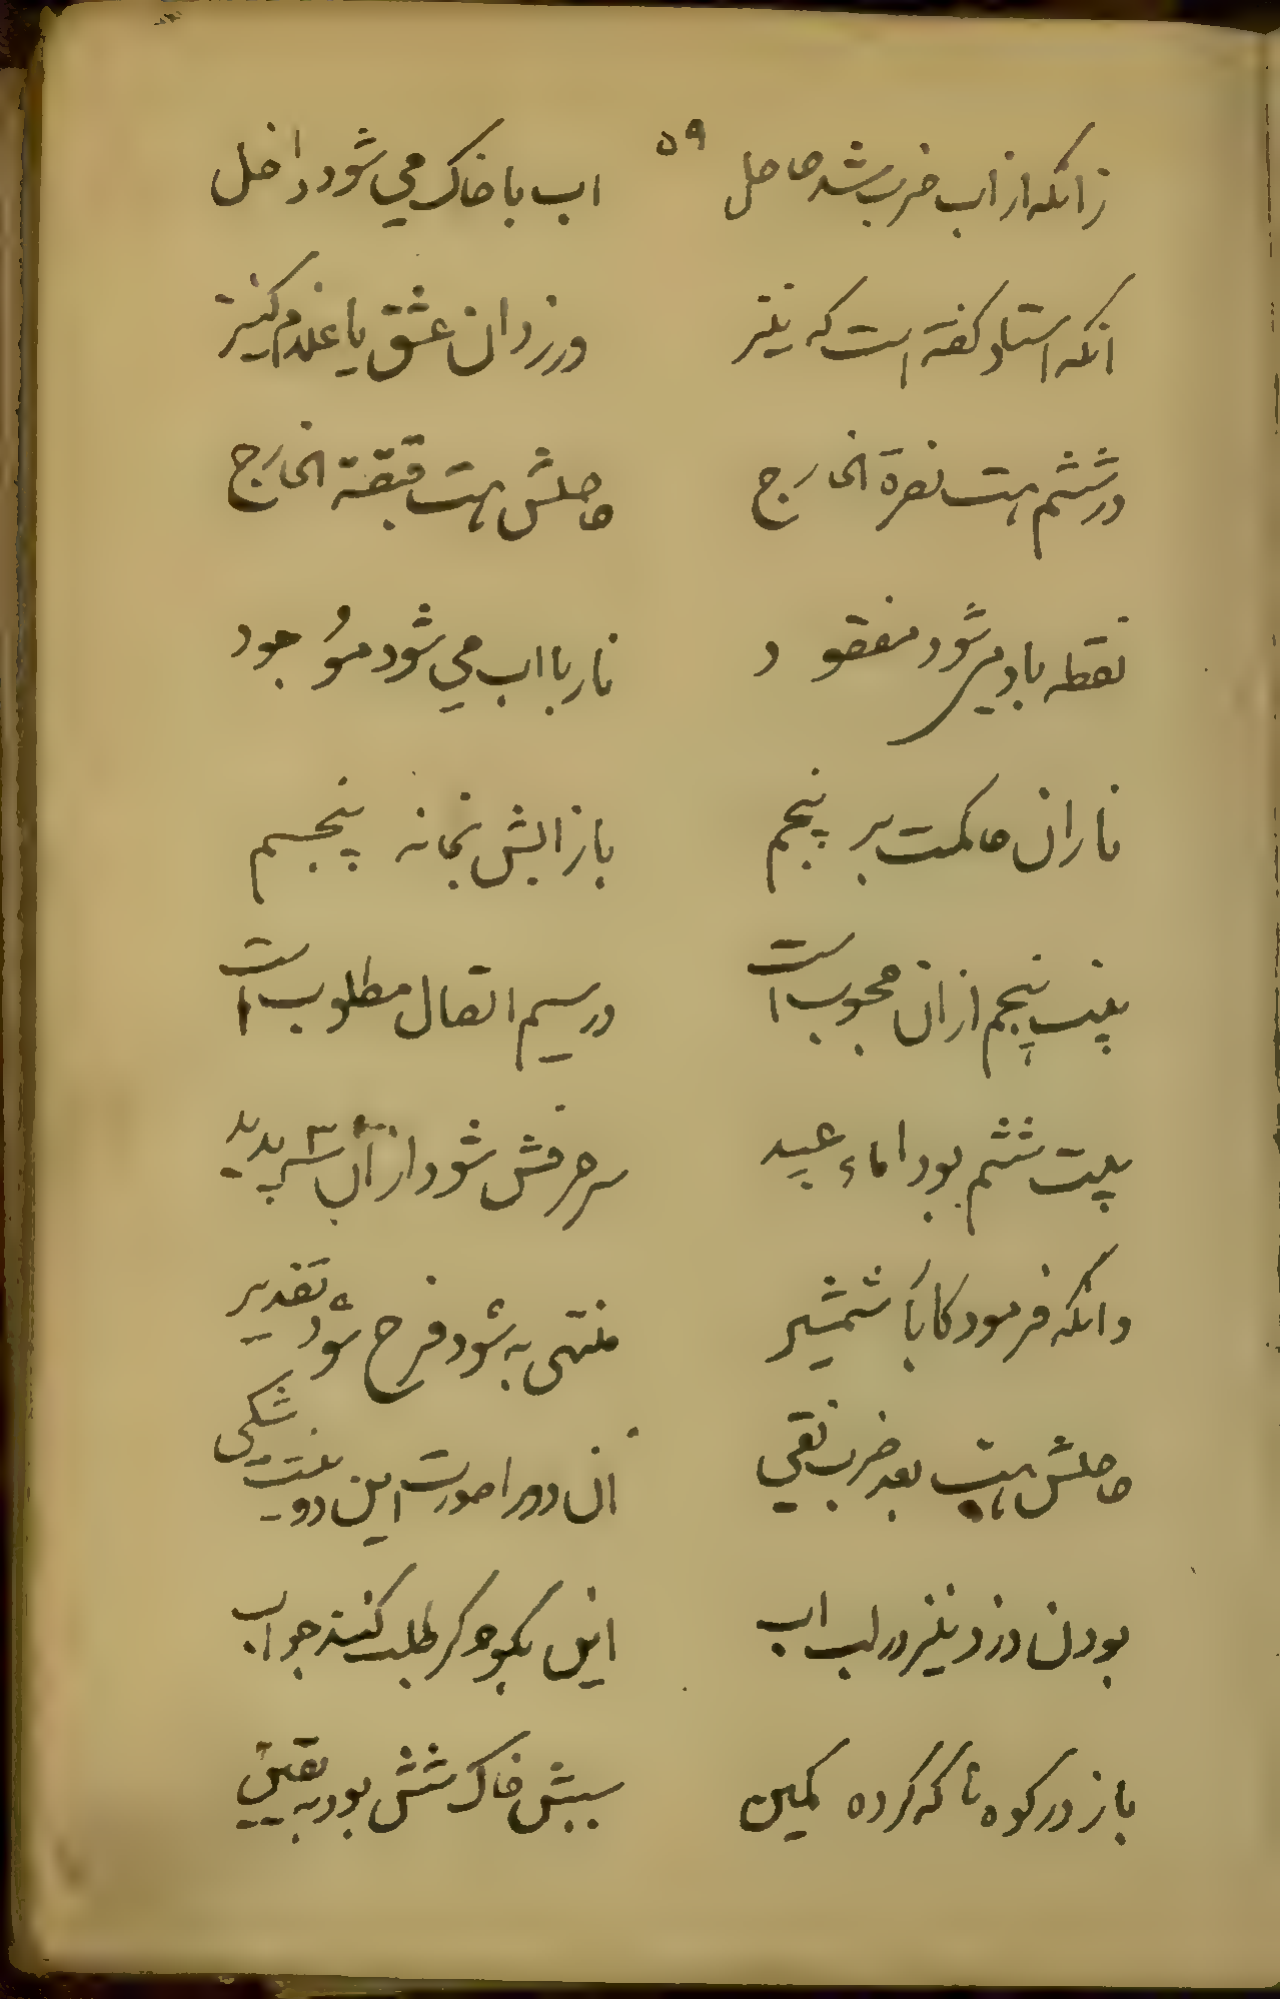 ۵۹
زانکه از اب ضرب شد حاصل اب با خاک می شود داخل
انکه استاد کفته است که نیز درزدان عشق یا غلام کنیز
در ششم هست نصرة الخارج حاصلش هست قبقته الخارج
نقطه باد میشود مفقود نار با اب می شود موُجود
نار ان حاکمت بر پنجم باز ابش بخانه پنجسم
بیت پنجم از ان محبوب است در سیم اتصال مطلوب است
بیت ششم بود اماء عبید سر حرفش شود از آن پدید
وانکه فرمود کا با شمشیر منتهی به شود فرح شود تقدیر
حاصلش هست بعد ضرب نقی ان دو را صورت این دو شکی
بودن دزد نیز در لب اب این بکو جو کر طلب کنند جواب
باز در کوه تا که کرده کمین سببش خاک شش بود به یقین